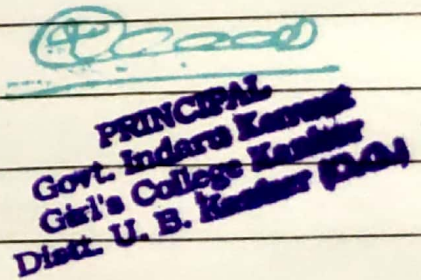 PRINCIPAL
Govt. Indaru Kenwat
Girl's College Kanker
Distt. U. B. Kanker (C.G.)